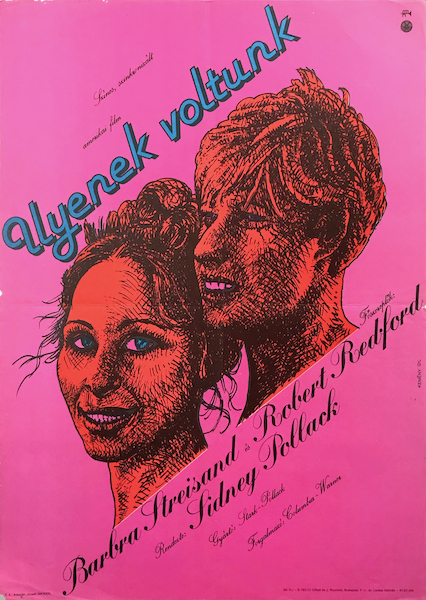 Színes, szinkronizált
amerikai film
Ilyenek voltunk
Főszereplők:
Barbra Streisand és Robert Redford
Rendezte: Sidney Pollack
Gyártó: Stark-Pollack
Forgalmazó: Columbia-Warner